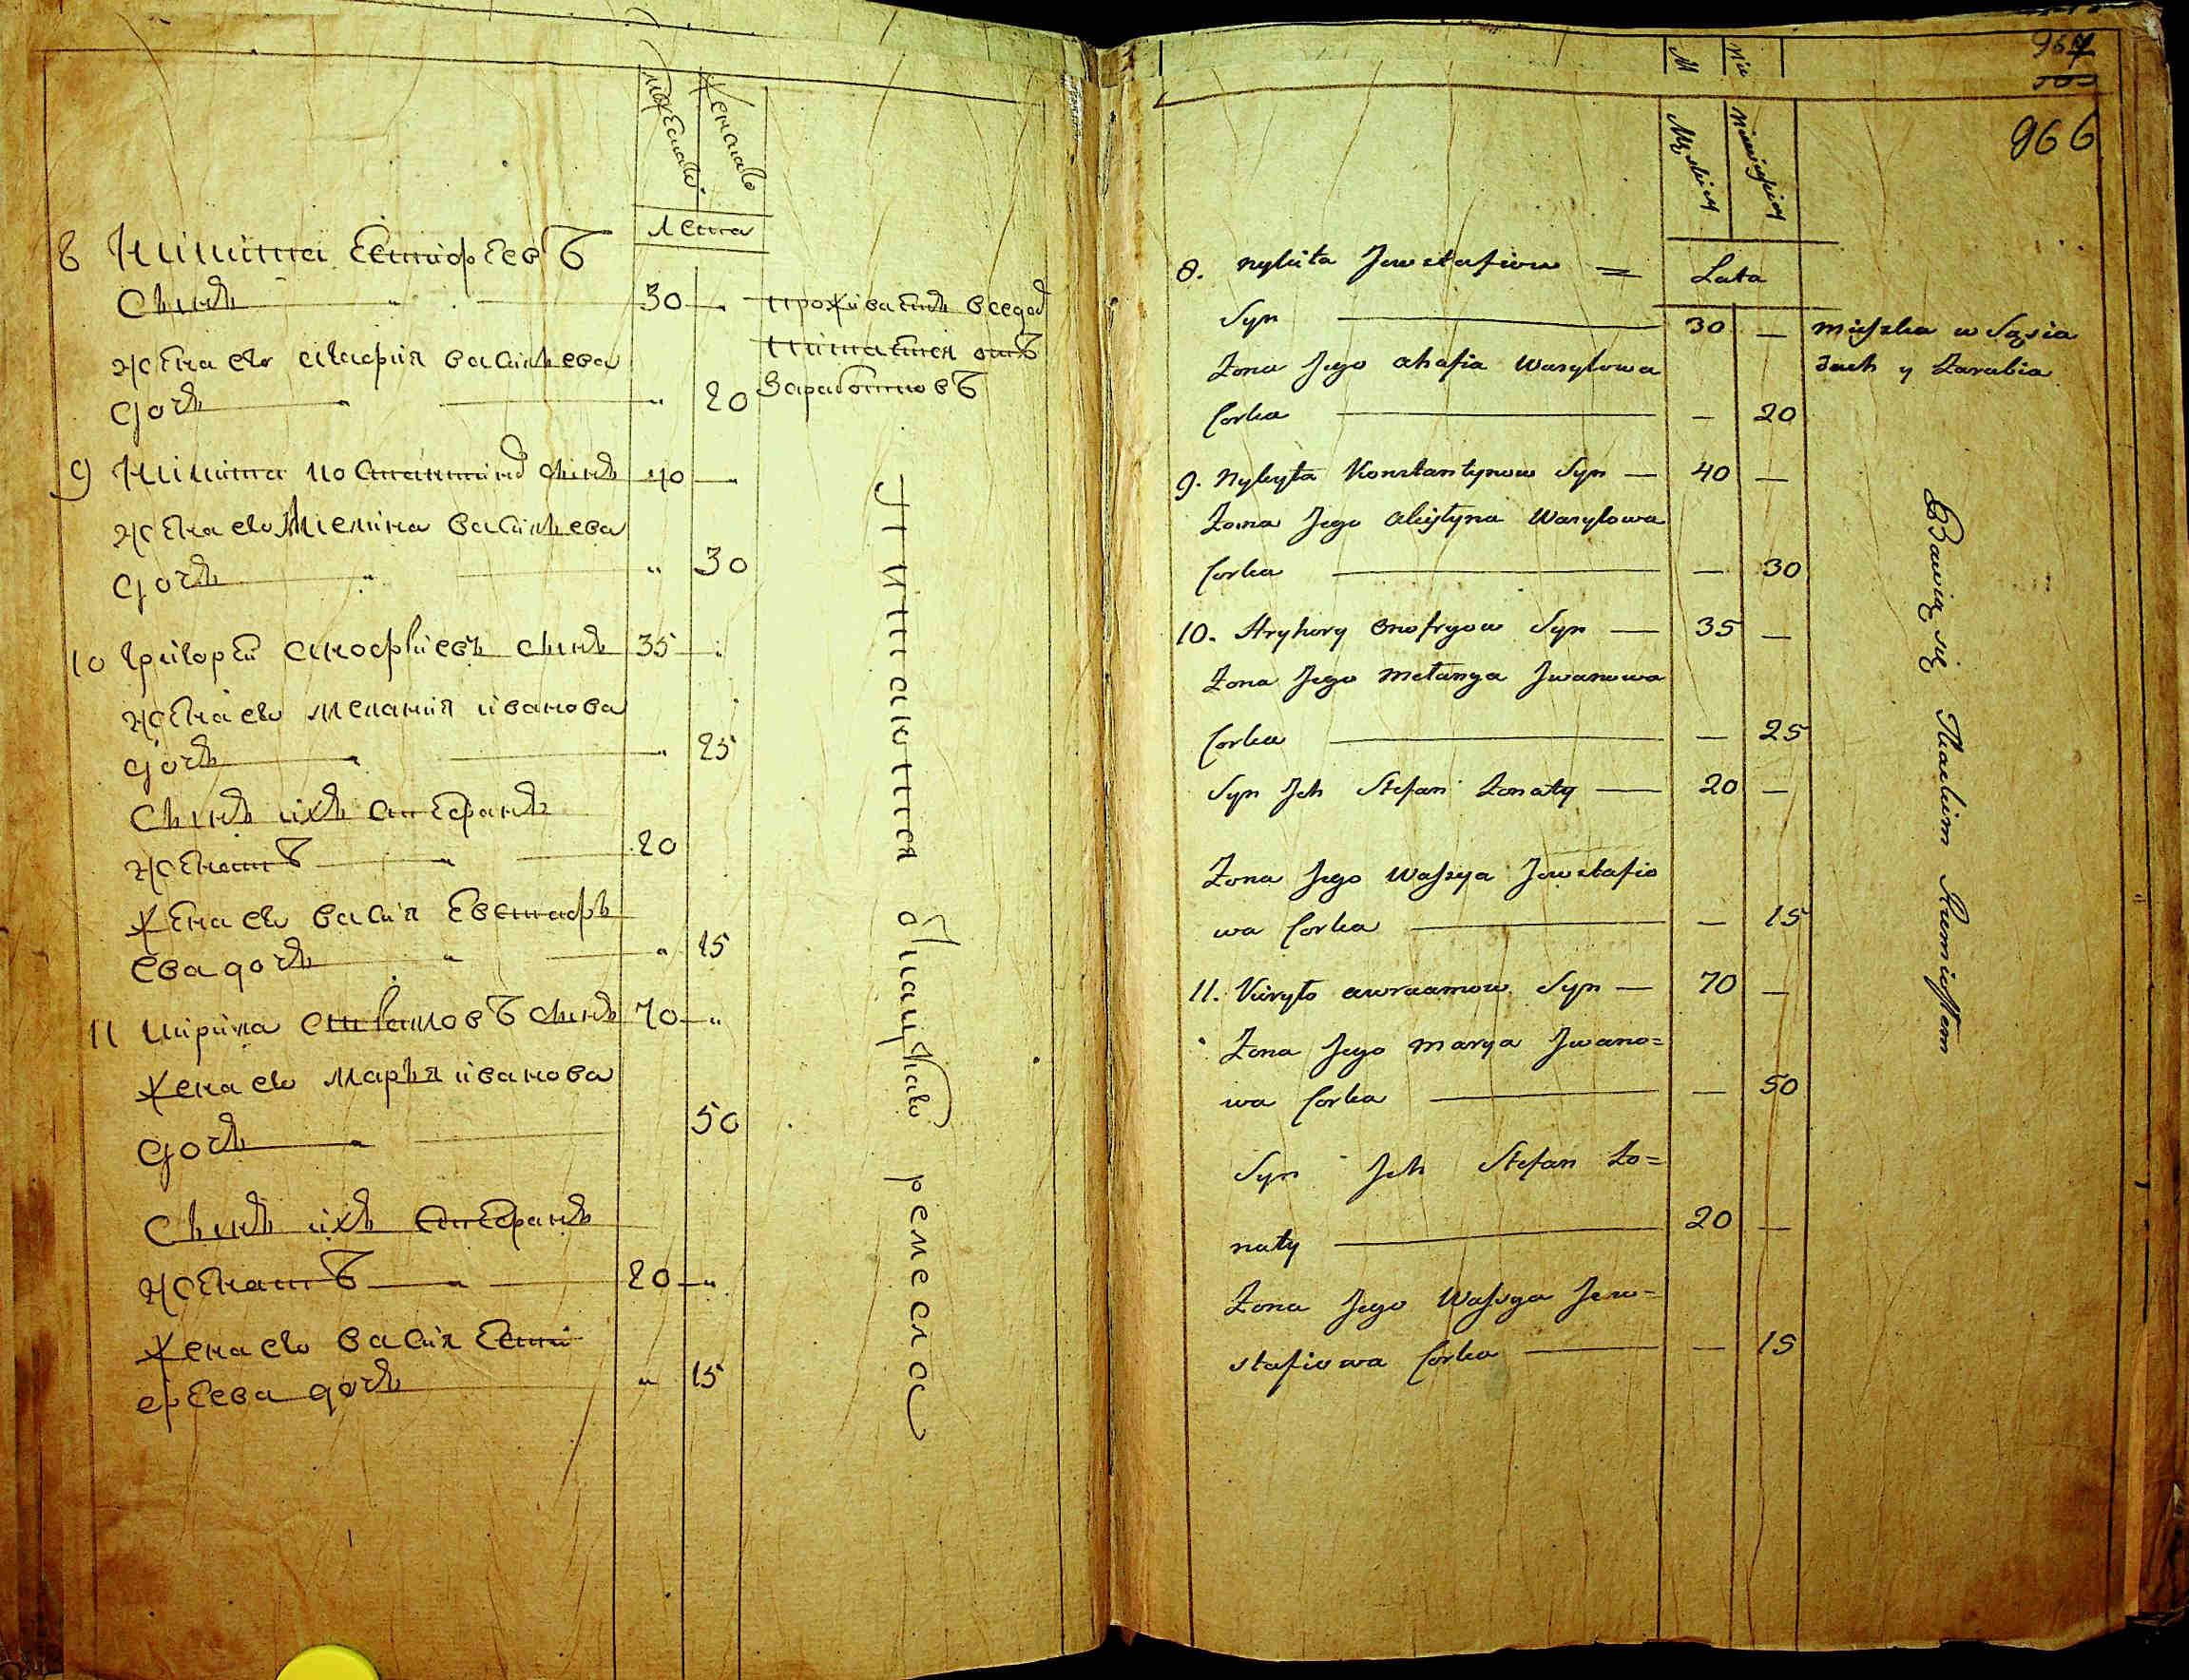 мужеска
Женска
лета
8 Никита Естафеев
Сынъ " 30 — проживатъ в сеդ
жена его агафия васильева питается отъ
дочь " " 20 Заработков
9 Никита костантинов сынъ 40 —
жена его васильева
дочь " " 30
10 григорей онофриевъ сынъ 35 "
жена его мелания иванова
дочь " " 25
Сынъ ихъ Стефанъ
женат " 20
жена его васия Евстафь
ева дочь " " 15
11 кирила сынъ 70 "
жена его марья иванова
дочь " 50
Сынъ ихъ Стефанъ
женат " 20 "
жена его васия Естаф
еева дочь " 15
питаются ремесла
M Nie
967
966
Męskiey
Niewieskiey
Lata
8. Nykita Jewstafiow =
Syn — 30 — Mieszka w Sąsia
Żona Jego Ahafia Wasylowa dach y Zarabia
Corka — — 20
9. Nykyta Konstantynow Syn — 40 —
Żona Jego Wasylowa
Corka — — 30
10. Hryhory Onofryow Syn — 35 —
Żona Jego Melanya Jwanowa
Corka — — 25
Syn Jch Stefan Żonaty — 20 —
Żona Jego Wassya Jewstafio
wa Corka — — 15
11. Kiryło Awraamow Syn — 70 —
Żona Jego Marya Jwano=
wa Corka — — 50
Syn Jch Stefan Żo=
naty — 20 —
Żona Jego Wassya Jew=
stafiowa Corka — — 15
Bawią się Tkackim Rzemiosłem